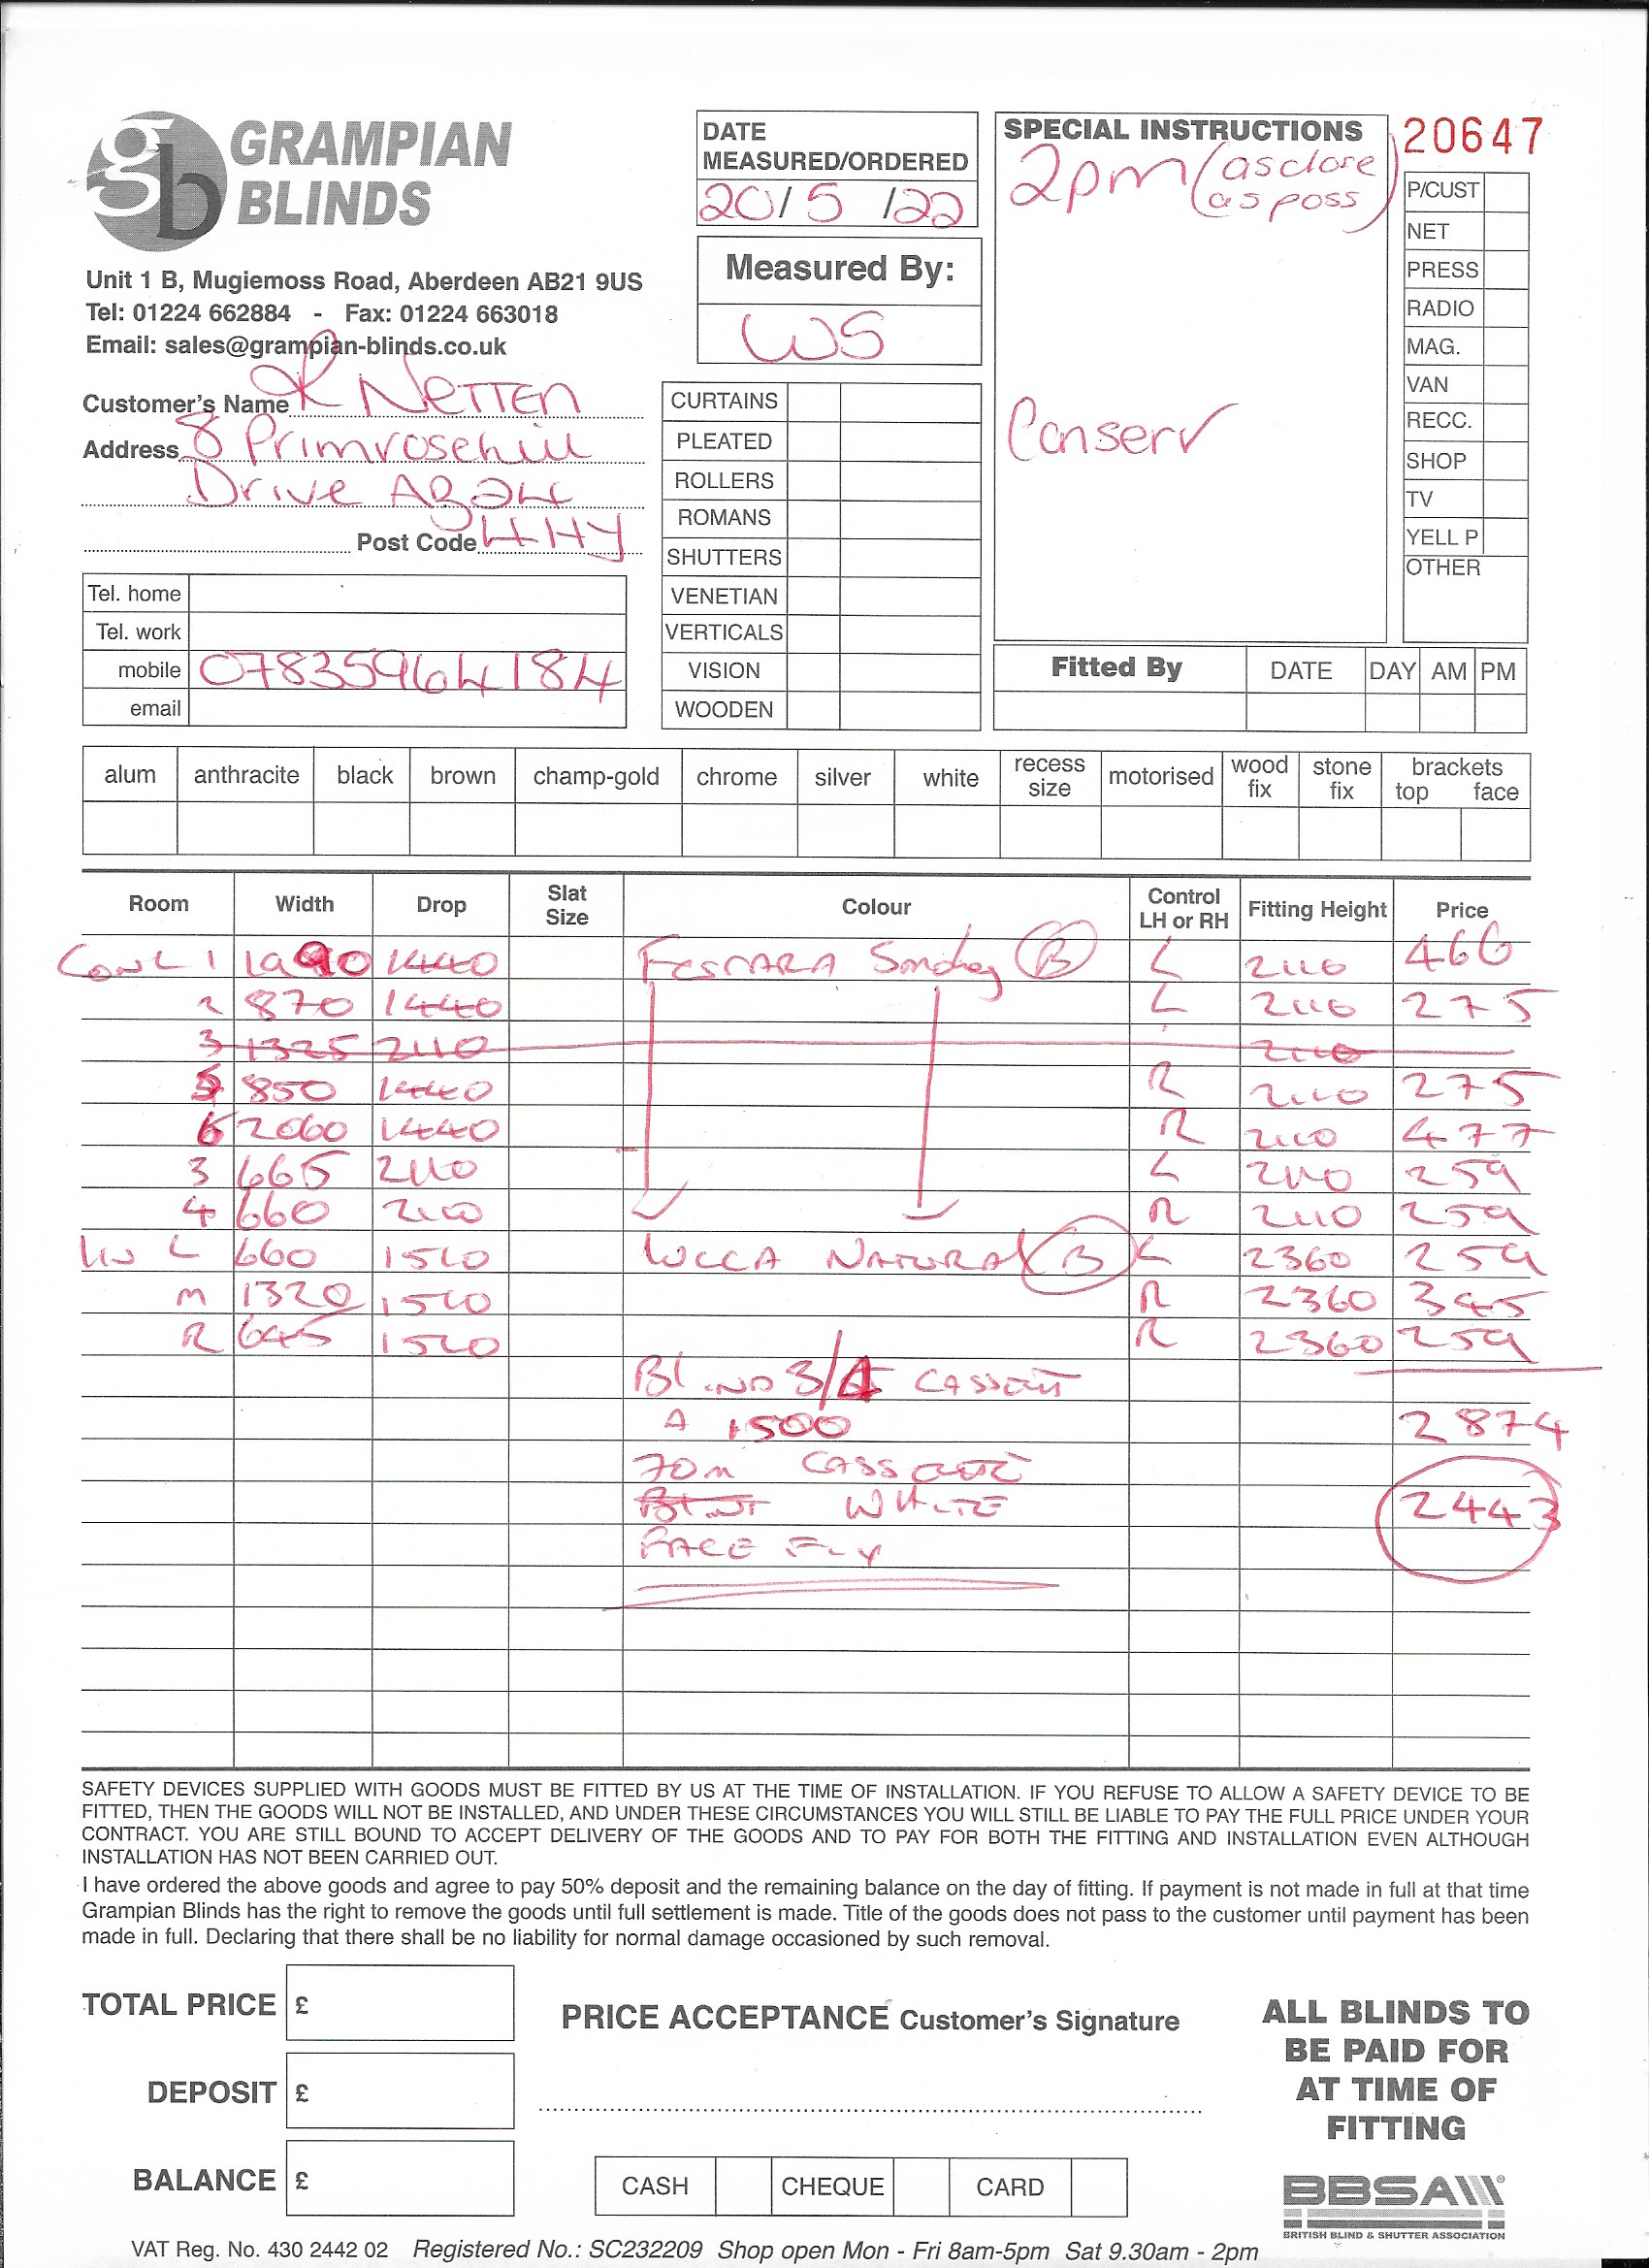 gb GRAMPIAN BLINDS
Unit 1 B, Mugiemoss Road, Aberdeen AB21 9US
Tel: 01224 662884 - Fax: 01224 663018
Email: sales@grampian-blinds.co.uk
Customer's Name R NETTEN
Address 8 Primrosehill
Drive AB24
Post Code 4HY
Tel. home
Tel. work
mobile 07835964184
email
DATE
MEASURED/ORDERED
20/5/22
Measured By:
WS
CURTAINS
PLEATED
ROLLERS
ROMANS
SHUTTERS
VENETIAN
VERTICALS
VISION
WOODEN
SPECIAL INSTRUCTIONS
2pm (as close
as poss)
Conserv
20647
P/CUST
NET
PRESS
RADIO
MAG.
VAN
RECC.
SHOP
TV
YELL P
OTHER
Fitted By DATE DAY AM PM
alum anthracite black brown champ-gold chrome silver white recess size motorised wood fix stone fix brackets top face
Room Width Drop Slat Size Colour Control LH or RH Fitting Height Price
1 1990 1440 Smokey B L 2110 466
2 870 1440 L 2110 275
3 1325 2110 2110
5 850 1440 R 2110 275
6 2060 1440 R 2110 477
3 665 2110 L 2110 259
4 660 2110 R 2110 259
Liv L 660 1510 LUCCA NATURAL B L 2360 259
M 1320 1510 R 2360 345
R 645 1510 R 2360 259
Blind 3/4 CASSETTE
A 1500 2874
70m CASSETTE
WHITE 2443
FACE FIX
SAFETY DEVICES SUPPLIED WITH GOODS MUST BE FITTED BY US AT THE TIME OF INSTALLATION. IF YOU REFUSE TO ALLOW A SAFETY DEVICE TO BE
FITTED, THEN THE GOODS WILL NOT BE INSTALLED, AND UNDER THESE CIRCUMSTANCES YOU WILL STILL BE LIABLE TO PAY THE FULL PRICE UNDER YOUR
CONTRACT. YOU ARE STILL BOUND TO ACCEPT DELIVERY OF THE GOODS AND TO PAY FOR BOTH THE FITTING AND INSTALLATION EVEN ALTHOUGH
INSTALLATION HAS NOT BEEN CARRIED OUT.
I have ordered the above goods and agree to pay 50% deposit and the remaining balance on the day of fitting. If payment is not made in full at that time
Grampian Blinds has the right to remove the goods until full settlement is made. Title of the goods does not pass to the customer until payment has been
made in full. Declaring that there shall be no liability for normal damage occasioned by such removal.
TOTAL PRICE £
DEPOSIT £
BALANCE £
PRICE ACCEPTANCE Customer's Signature
CASH CHEQUE CARD
ALL BLINDS TO
BE PAID FOR
AT TIME OF
FITTING
BBSA
BRITISH BLIND & SHUTTER ASSOCIATION
VAT Reg. No. 430 2442 02 Registered No.: SC232209 Shop open Mon - Fri 8am-5pm Sat 9.30am - 2pm